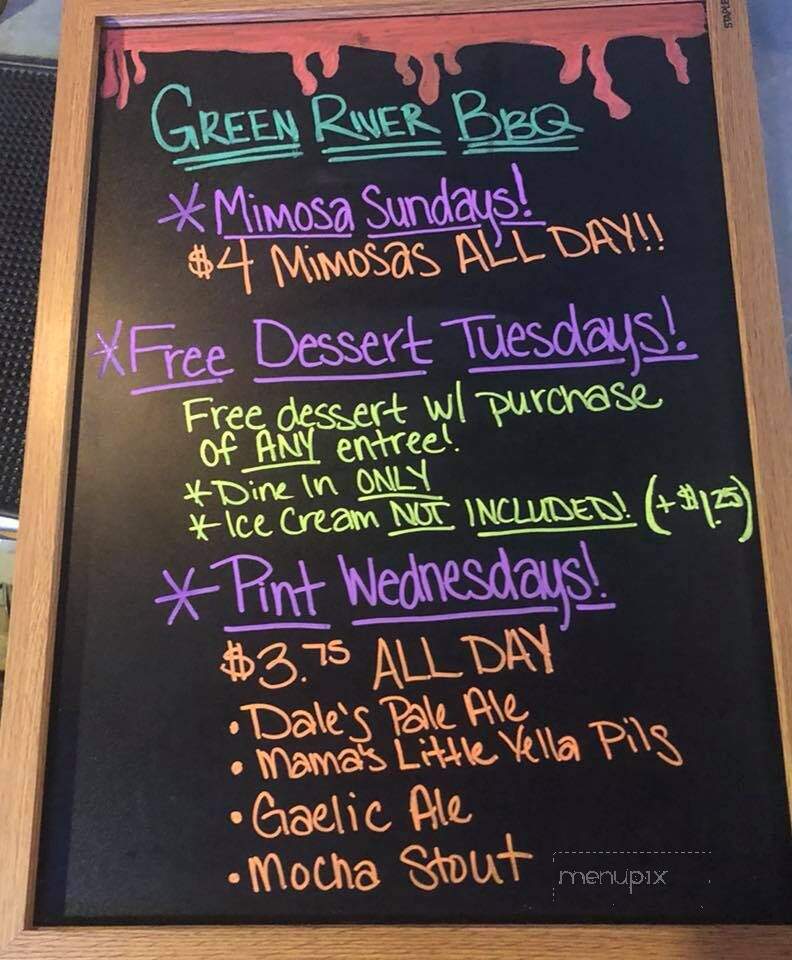 STAPLES
GREEN RIVER BBQ
* Mimosa Sundays!
$4 Mimosas ALL DAY!!
* Free Dessert Tuesdays!
Free dessert w/ purchase
of ANY entree!
* Dine In ONLY
* Ice Cream NOT INCLUDED! (+ $1.25)
* Pint Wednesdays!
$3.75 ALL DAY
• Dale's Pale Ale
• Mama's Little Yella Pils
• Gaelic Ale
• Mocha Stout
menupix